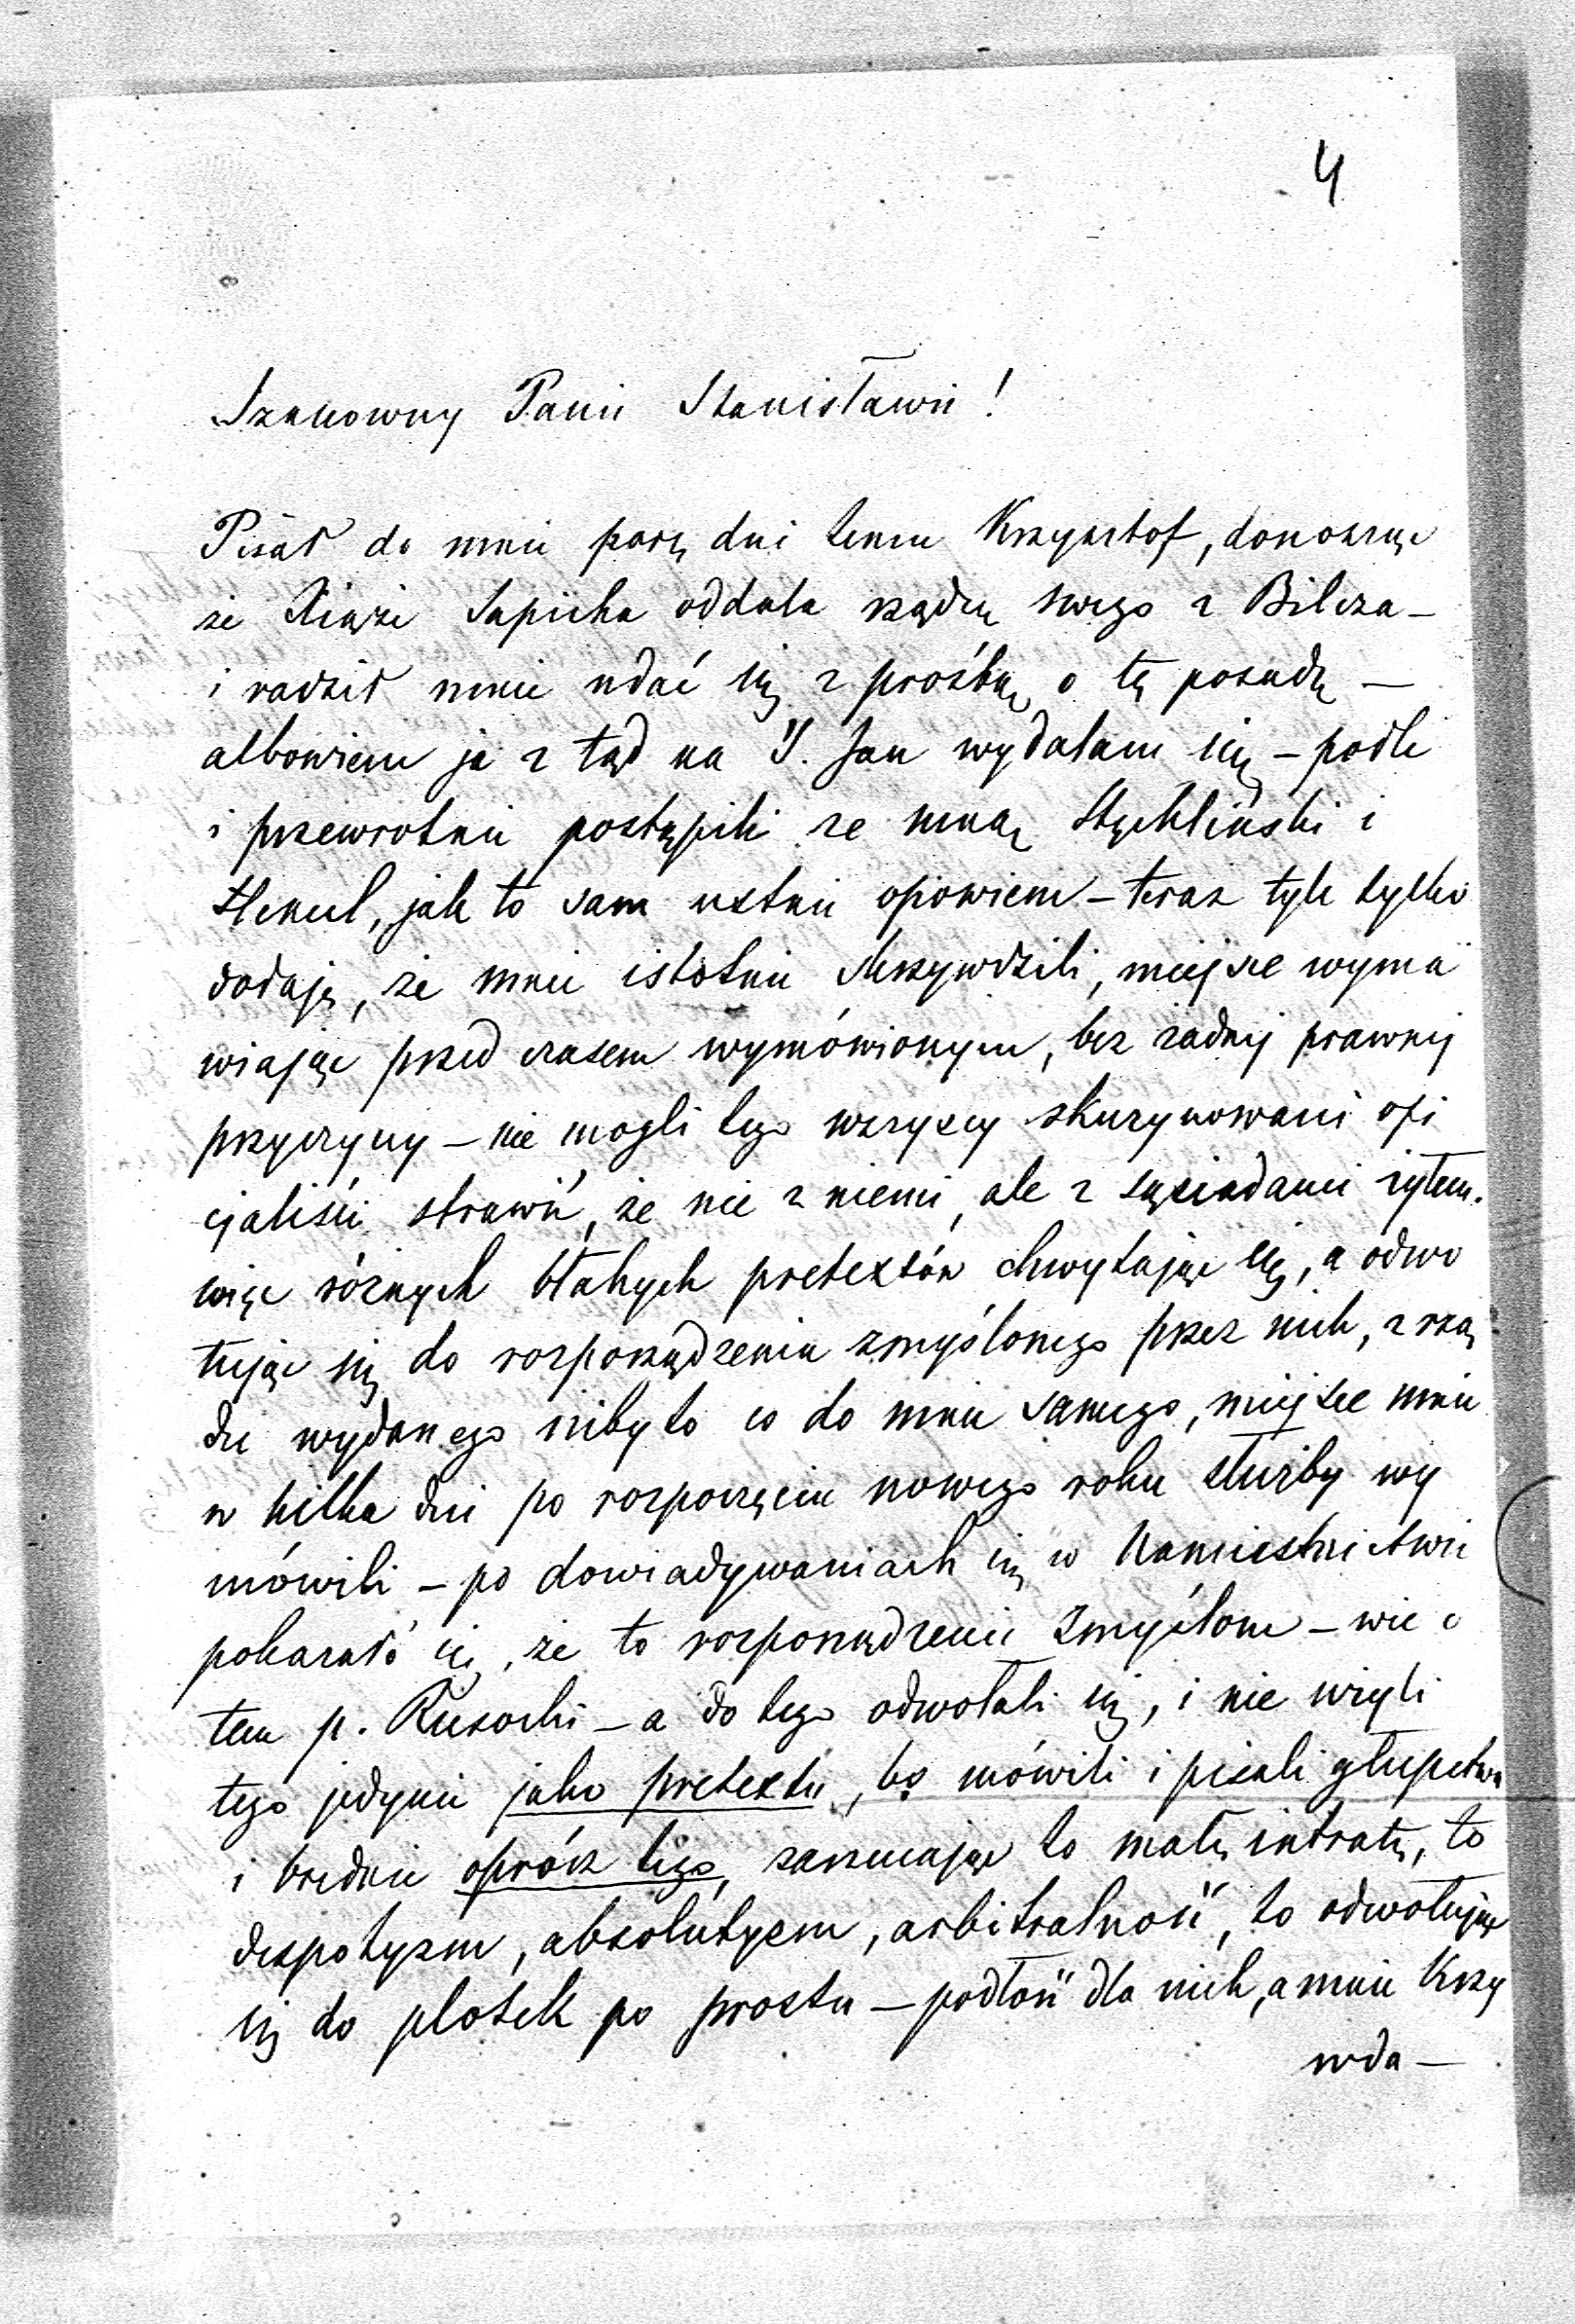 4
Szanowny Panie Stanisławie!
Pisał do mnie parę dni temu Krzysztof, donosząc
że Xiąże Sapieha oddala rządcę swego z Bilcza –
i radził mnie udać się z prośbą o tę posadę –
albowiem ja z tąd na Ś. Jan wydalam się – podle
i przewrotnie postąpili ze mną Stęchliński i
Hencel, jak to sam ustnie opowiem – teraz tyle tylko
dodaję, że mnie istotnie skrzywdzili, miejsce wyma
wiając przed czasem wymówionym, bez żadnej prawnej
przyczyny – nie mogli tego wszyscy skuzynowani ofi
cjaliści strawić, że nie z niemi, ale z sąsiadami żyłem.
więc różnych błahych pretextów chwytając się, a odwo
łując się do rozporządzenia zmyślonego przez nich, z rzą
du wydanego niby to co do mnie samego, miejsce mnie
w kilka dni po rozpoczęciu nowego roku służby wy
mówili – po dowiadywaniach się w Namiestnictwie
pokazało się, że to rozporządzenie zmyślone – wie o
tem p. Rusocki – a do tego odwołali się, i nie wzięli
tego jedynie jako pretextu, bo mówili i pisali głupstwa
i brednie oprócz tego, zarzucając to małą intratę, to
despotyzm, absolutyzm, arbitralność, to odwołując
się do plotek po prostu – podłość dla nich, a mnie Krzy
wda –